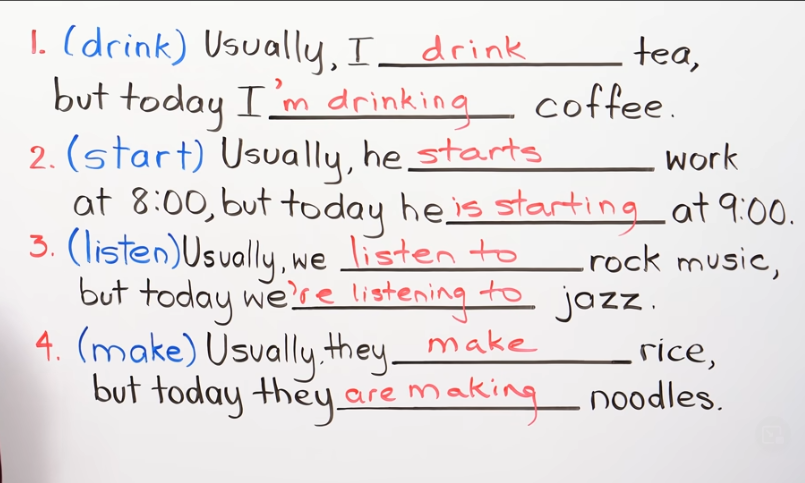 1. (drink) Usually, I drink tea,
but today I'm drinking coffee.
2. (start) Usually, he starts work
at 8:00, but today he is starting at 9:00.
3. (listen) Usually, we listen to rock music,
but today we're listening to jazz.
4. (make) Usually, they make rice,
but today they are making noodles.